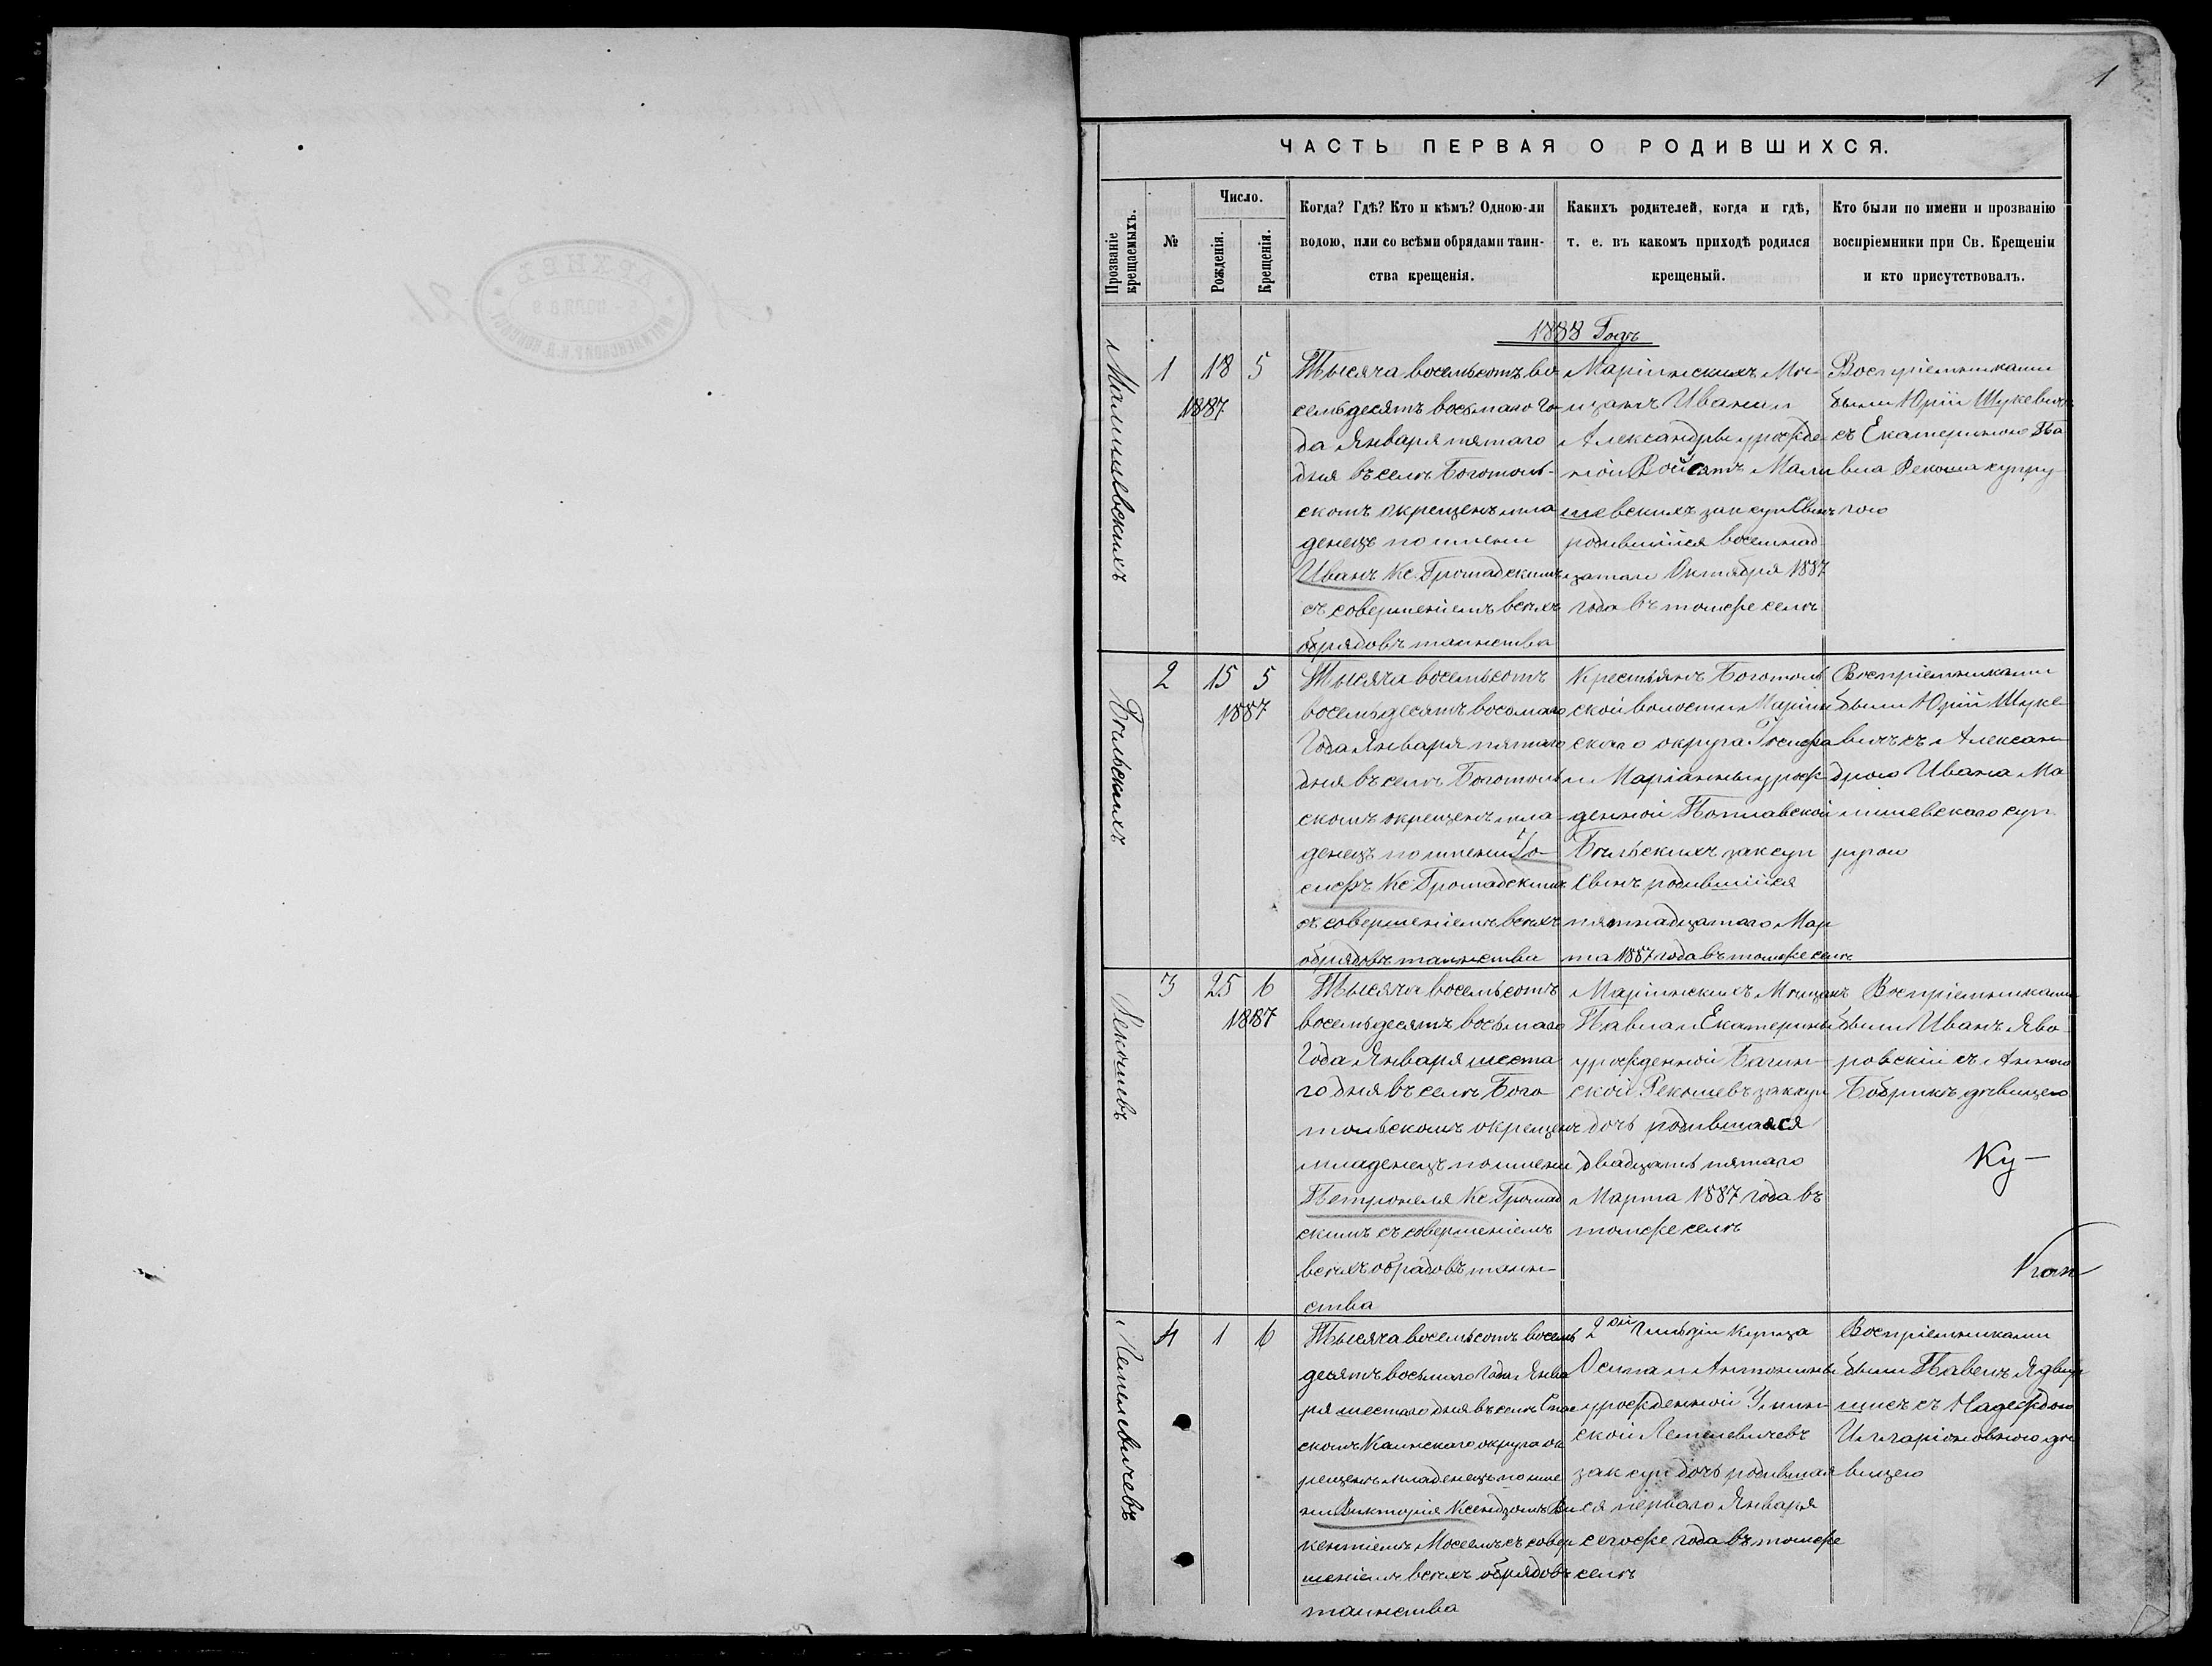 1
ЧАСТЬ ПЕРВАЯ О РОДИВШИХСЯ.
Прозваніе
крещаемыхъ.
№
Число.
Рожденія.
Крещенія.
Когда? Гдѣ? Кто и кѣмъ? Одною-ли
водою, или со всѣми обрядами таин-
ства крещенія.
Какихъ родителей, когда и гдѣ,
т. е. въ какомъ приходѣ родился
крещеный.
Кто были по имени и прозванію
воспріемники при Св. Крещеніи
и кто присутствовалъ.
1888 Годъ
Малишевскихъ
1
18 5
1887
Тысяча восемьсотъ во-
семьдесятъ восьмаго Го-
да Января пятаго
дня въ селѣ Боготоль-
скомъ окрещенъ мла
денецъ по имени
Иванъ Кс. Громадскимъ
съ совершеніемъ всѣхъ
обрядовъ таинства
Маріинскихъ Мѣ-
щанъ Ивана и
Александры урожде-
ной Войсятъ Мали
шевскихъ зак суп Сынъ
родившійся восемнад
цатаго Октября 1887
года въ томже селѣ
Воспріемниками
были Юрій Шукевичъ
съ Екатериною Па
вла Рекоша супру-
гою
Бѣльскихъ
2
15 5
1887
Тысяча восемьсотъ
восемьдесятъ восьмаго
Года Января пятаго
дня въ селѣ Боготоль
скомъ окрещенъ мла-
денецъ по имени Іо-
сифъ Кс Громадскимъ
съ совершеніемъ всѣхъ
обрядовъ таинства
Крестьянъ Боготоль
ской волости Маріин
скаго округа Іосифа
и Маріанны урож-
денной Поплавской
Бѣльскихъ зак суп
Сынъ родившійся
пятнадцатаго Мар
та 1887 года въ томже селѣ
Воспріемниками
были Юрій Шуке-
вичъ съ Алексан-
дрою Ивана Ма
лишевскаго суп
ругою
Рекошевъ
3
25 6
1887
Тысяча восемьсотъ
восемьдесятъ восьмаго
Года Января шеста
го дня въ селѣ Бого
тольскомъ окрещенъ
младенецъ по имени
Петронеля Кс Громад
скимъ съ совершеніемъ
всѣхъ обрядовъ таин-
ства
Маріинскихъ Мѣщанъ
Павла и Екатерины
урожденной Багин-
ской Рекошевъ зак суп
дочь родившаяся
двадцать пятаго
Марта 1887 года въ
томже селѣ
Воспріемниками
были Иванъ Яво-
ровскій съ Анною
Бобрикъ дѣвицею
Ку-
Лепелевичевъ
4
1 6
Тысяча восемьсотъ восемь
десятъ восьмаго Года Янва
ря шестаго дня въ селѣ Спас
скомъ Каинскаго округа ок
рещенъ младенецъ по име
ни Викторія Ксендзомъ Ви
кентіемъ съ совер
шеніемъ всѣхъ обрядовъ
таинства
2ой Гильдіи Купца
Осипа и Антонины
урожденной
ской Лепелевичевъ
зак суп дочь родившая
ся перваго Января
сегоже года въ томже
селѣ
Воспріемниками
были Павелъ
съ Надеждою
Илларіоновною дѣ
вицею